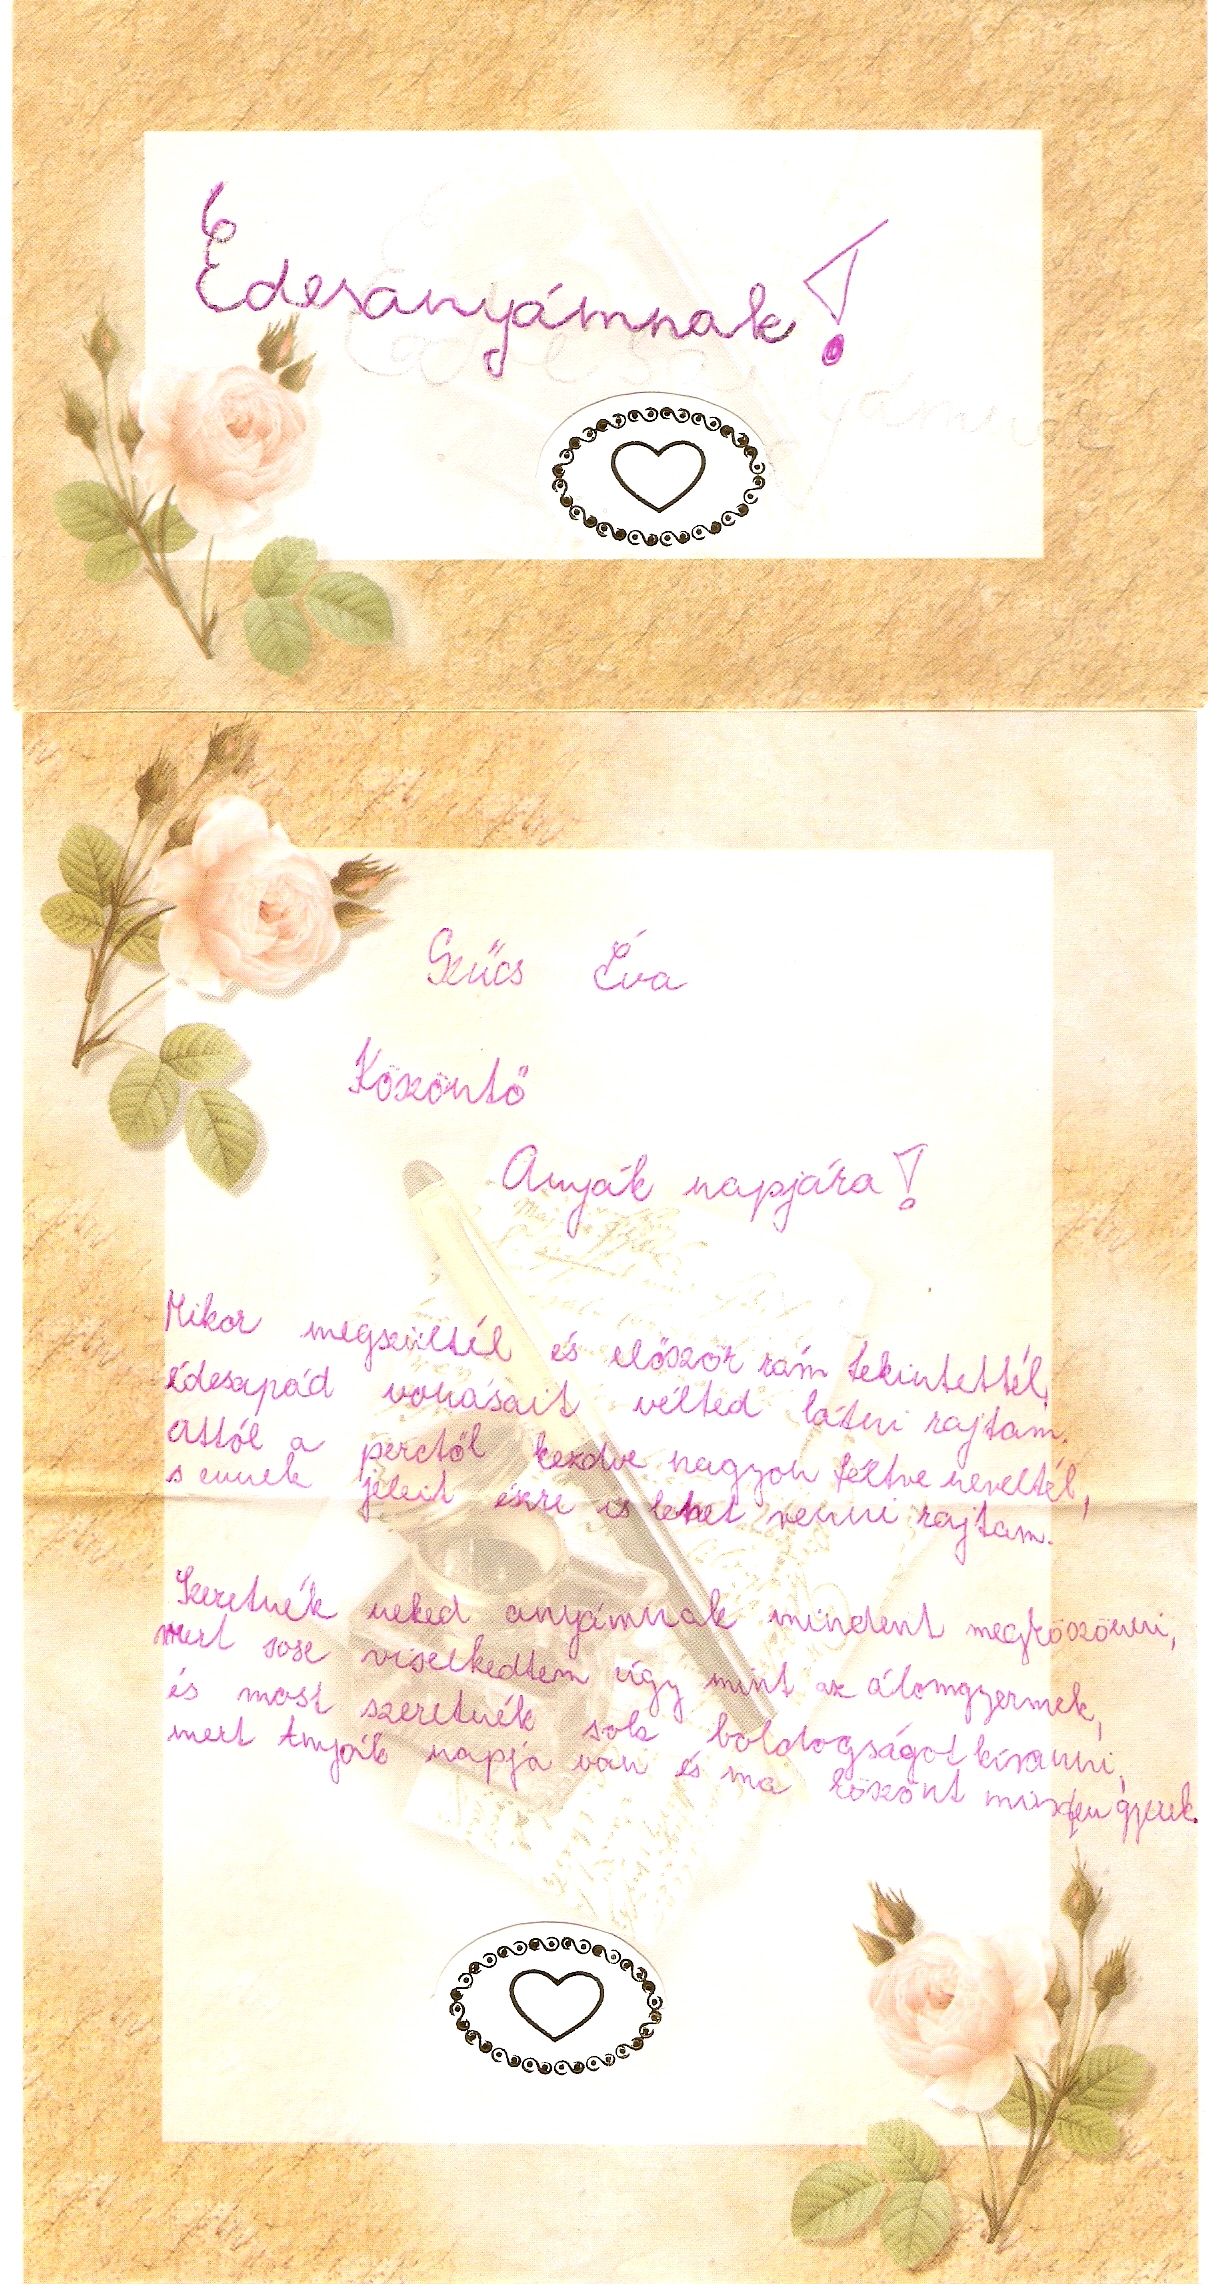 Édesanyámnak!
Szűcs Éva
Köszöntő
Anyák napjára!
Mikor megszültél és először rám tekintettél,
édesapád vonásait vélted látni rajtam.
Attól a perctől kezdve nagyon féltve neveltél,
s ennek jeleit észre is lehet venni rajtam.
Szeretnék neked anyámnak mindent megköszönni,
mert sose viselkedtem úgy mint az álomgyermek,
és most szeretnék sok boldogságot kívánni,
mert Anyák napja van és ma köszönt minden gyerek.